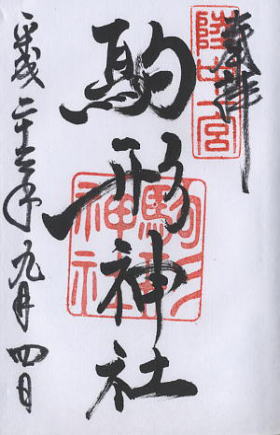 奉拝
陸中一宮
駒形神社
駒形神社
平成二十三年九月四日